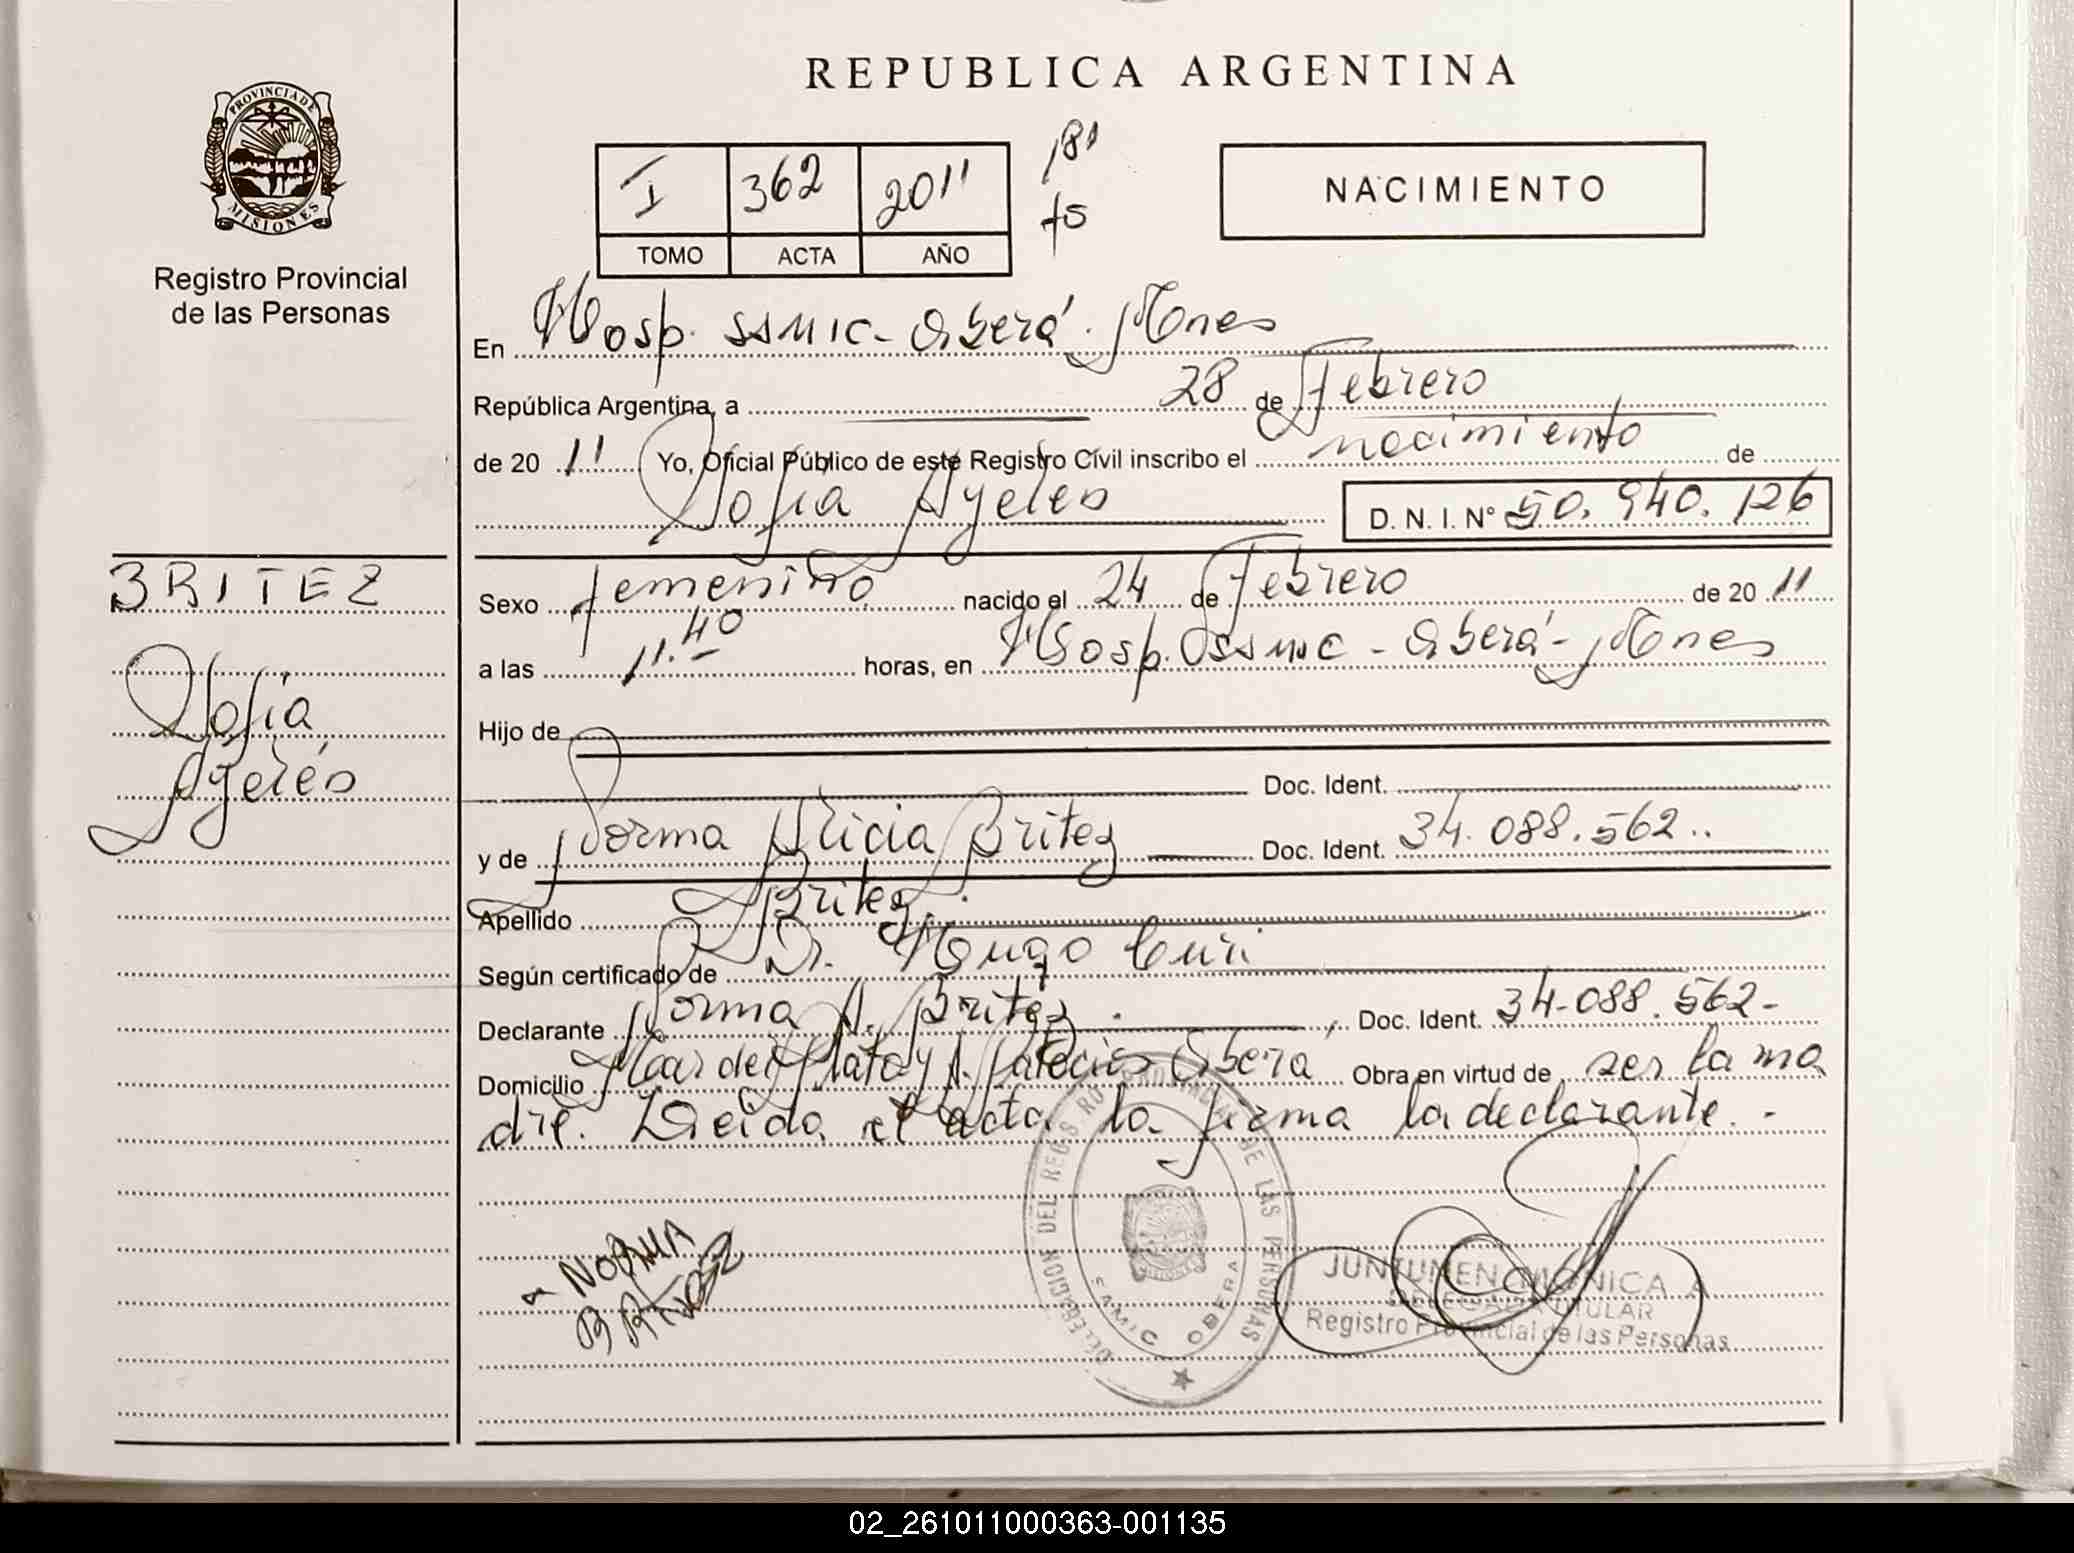 PROVINCIA DE
MISIONES
Registro Provincial
de las Personas
BRITEZ
Sofia
Ayelén
REPUBLICA ARGENTINA
I 362 2011
TOMO ACTA AÑO
NACIMIENTO
En Hosp. SSMIC - Oberá - Mnes
República Argentina, a 28 de Febrero
de 20 11 Yo, Oficial Público de este Registro Civil inscribo el nacimiento de
Sofia Ayelen D. N. I. N° 50.940.126
Sexo femenino nacido el 24 de Febrero de 20 11
a las 11.40 horas, en Hosp. SSMIC - Oberá - Mnes
Hijo de
Doc. Ident.
y de Norma Alicia Britez Doc. Ident. 34.088.562..
Apellido Britez.
Según certificado de Dr. Hugo Curi
Declarante Norma A. Britez. Doc. Ident. 34-088.562-
Domicilio Mar del Plata y Oberá Obra en virtud de ser la ma
dre. Leida el acta la firma la declarante. -
NORMA
DELEGACION DEL REG. PROVINCIAL DE LAS PERSONAS
SAMIC OBERA
JUNTUNEN MONICA A
DELEGADA TITULAR
Registro Provincial de las Personas
02_261011000363-001135